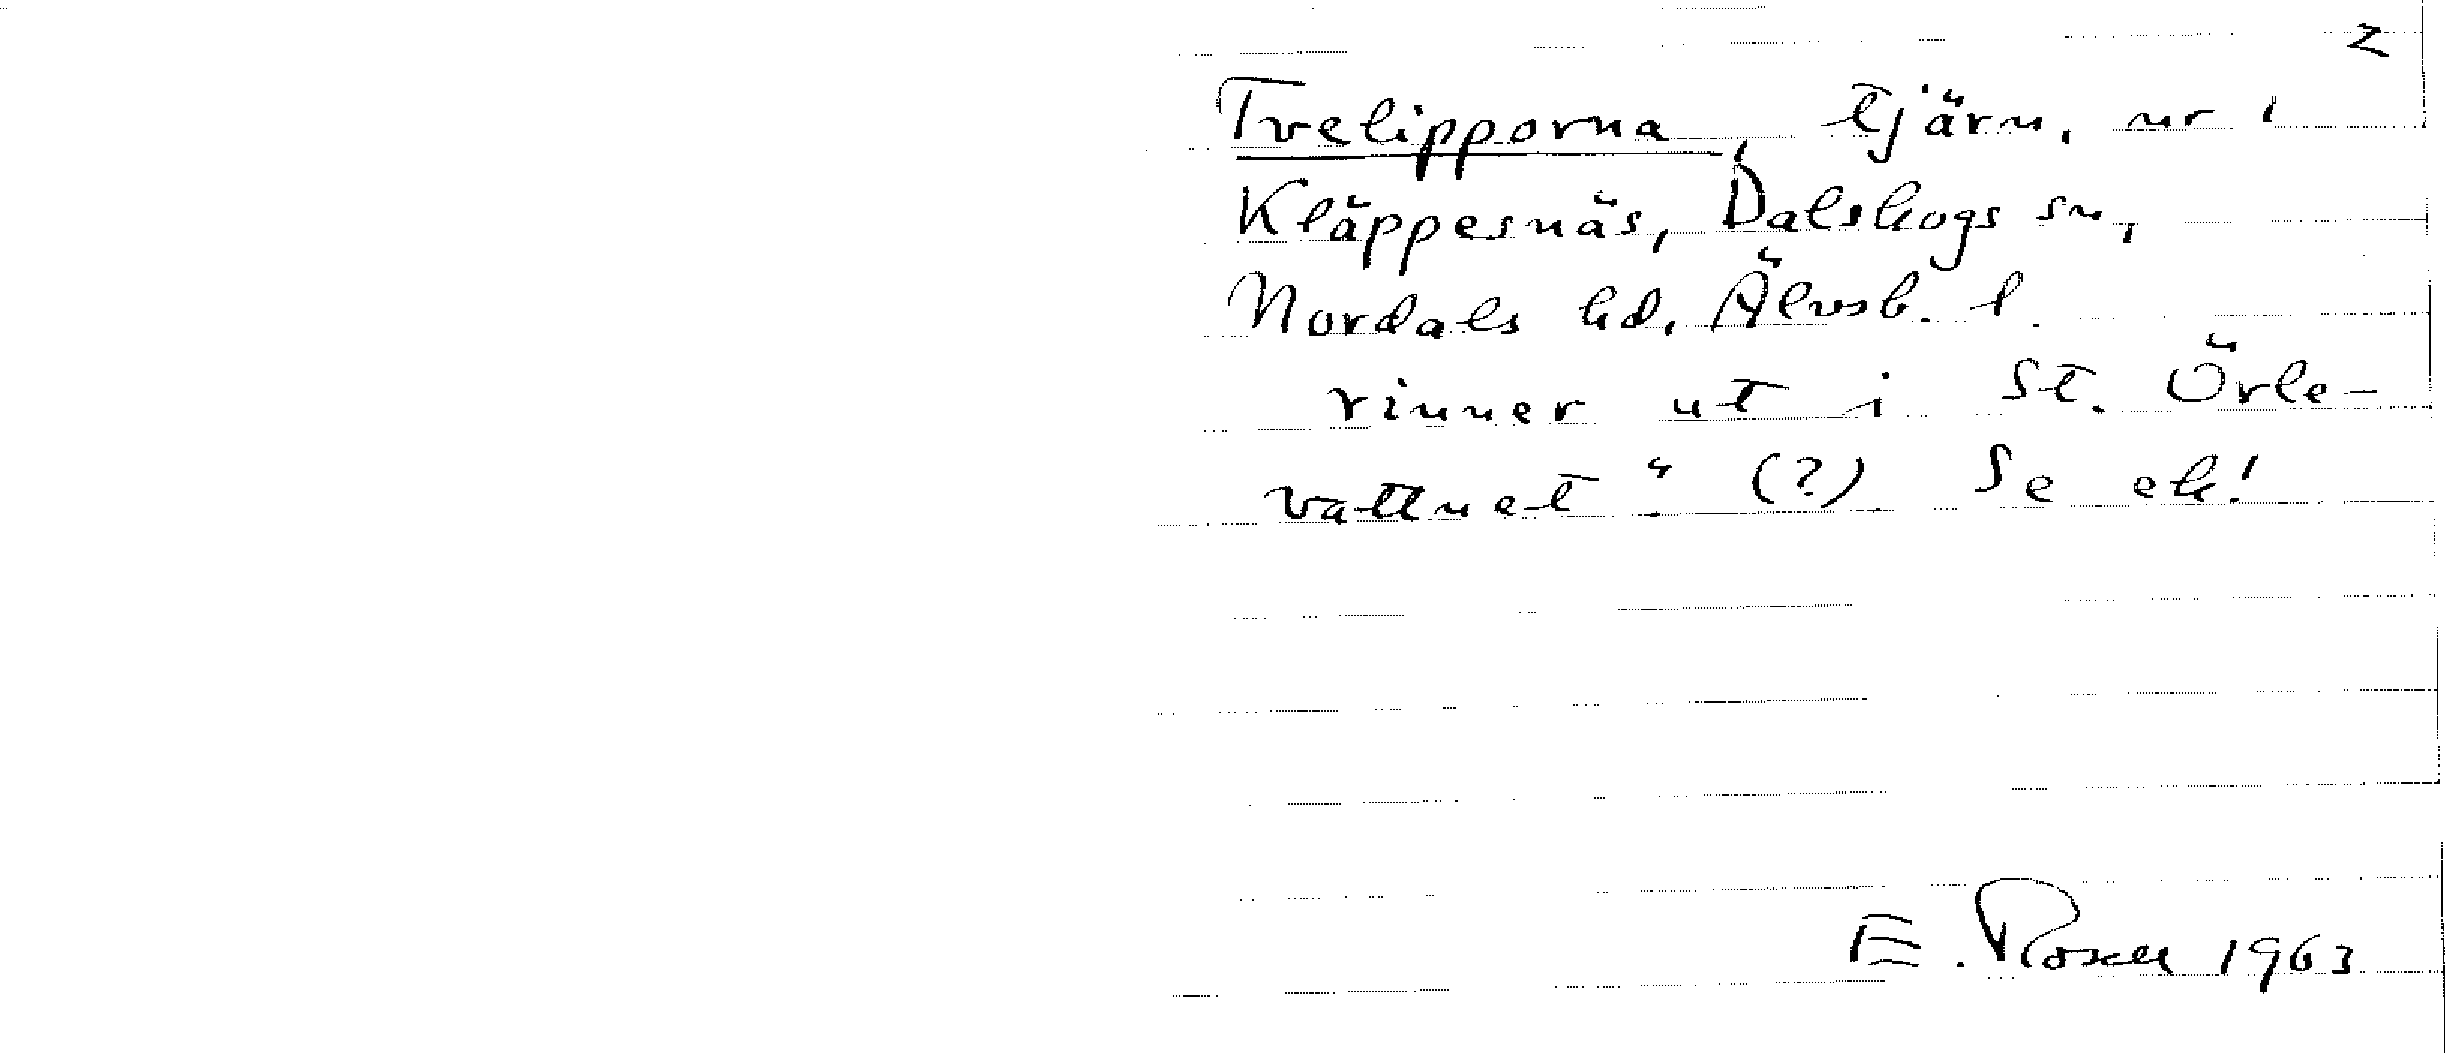 2
Tvelipporna, tjärn, nr 1
Kläppesnäs, Dalskogs sn,
Nordals hd. Älvsb. l.
rinner ut i St. Örle-
vattnet" (?) Se ek!
E. Rosell 1963